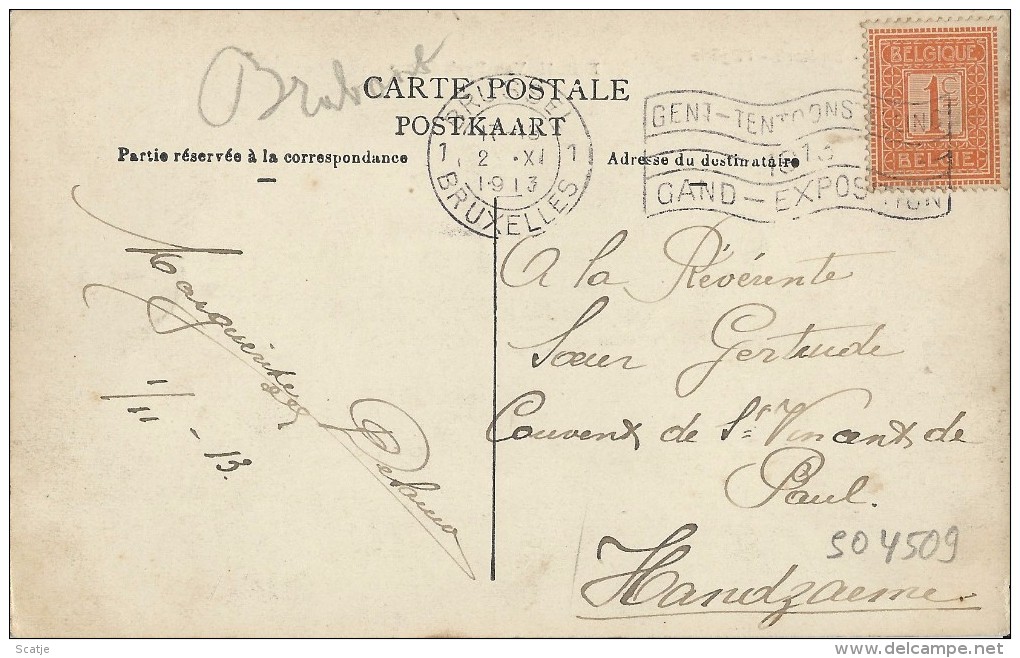 Brabant
CARTE POSTALE
POSTKAART
Partie réservée à la correspondance
Adresse du destinataire
BRUSSEL
1 2 XI 1
1913
BRUXELLES
GENT-TENTOONST
1913
GAND-EXPOSITION
BELGIQUE
1 C
BELGIË
A la Révérente
Sœur Gertrude
Couvent de St Vincent de
Paul.
Handzaeme
SO4509
Marguerite
1/11 - 13.
Scatje
delcampe.net